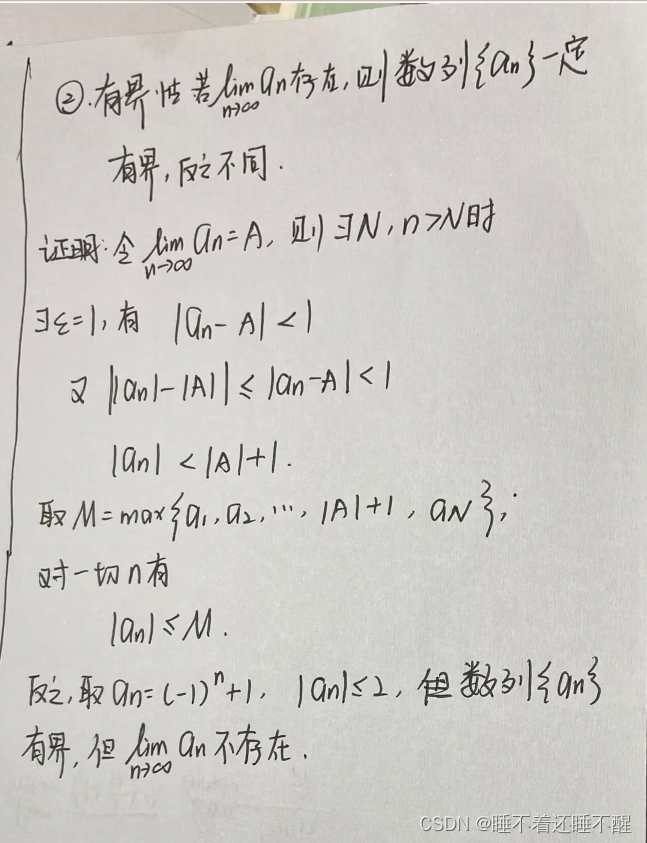 ②.有界性 若lim n→∞ an存在,则数列{an}一定
有界,反之不同.
证明:令 lim n→∞ an=A, 则∃N, n>N时
∃ε=1,有 |an-A|<1
又 ||an|-|A||≤|an-A|<1
|an|<|A|+1.
取 M=max{a1,a2,…,|A|+1,aN};
对一切n有
|an|≤M.
反之,取 an=(-1)^n+1, |an|≤2, 但数列{an}
有界,但 lim n→∞ an 不存在.
CSDN @睡不着还睡不醒